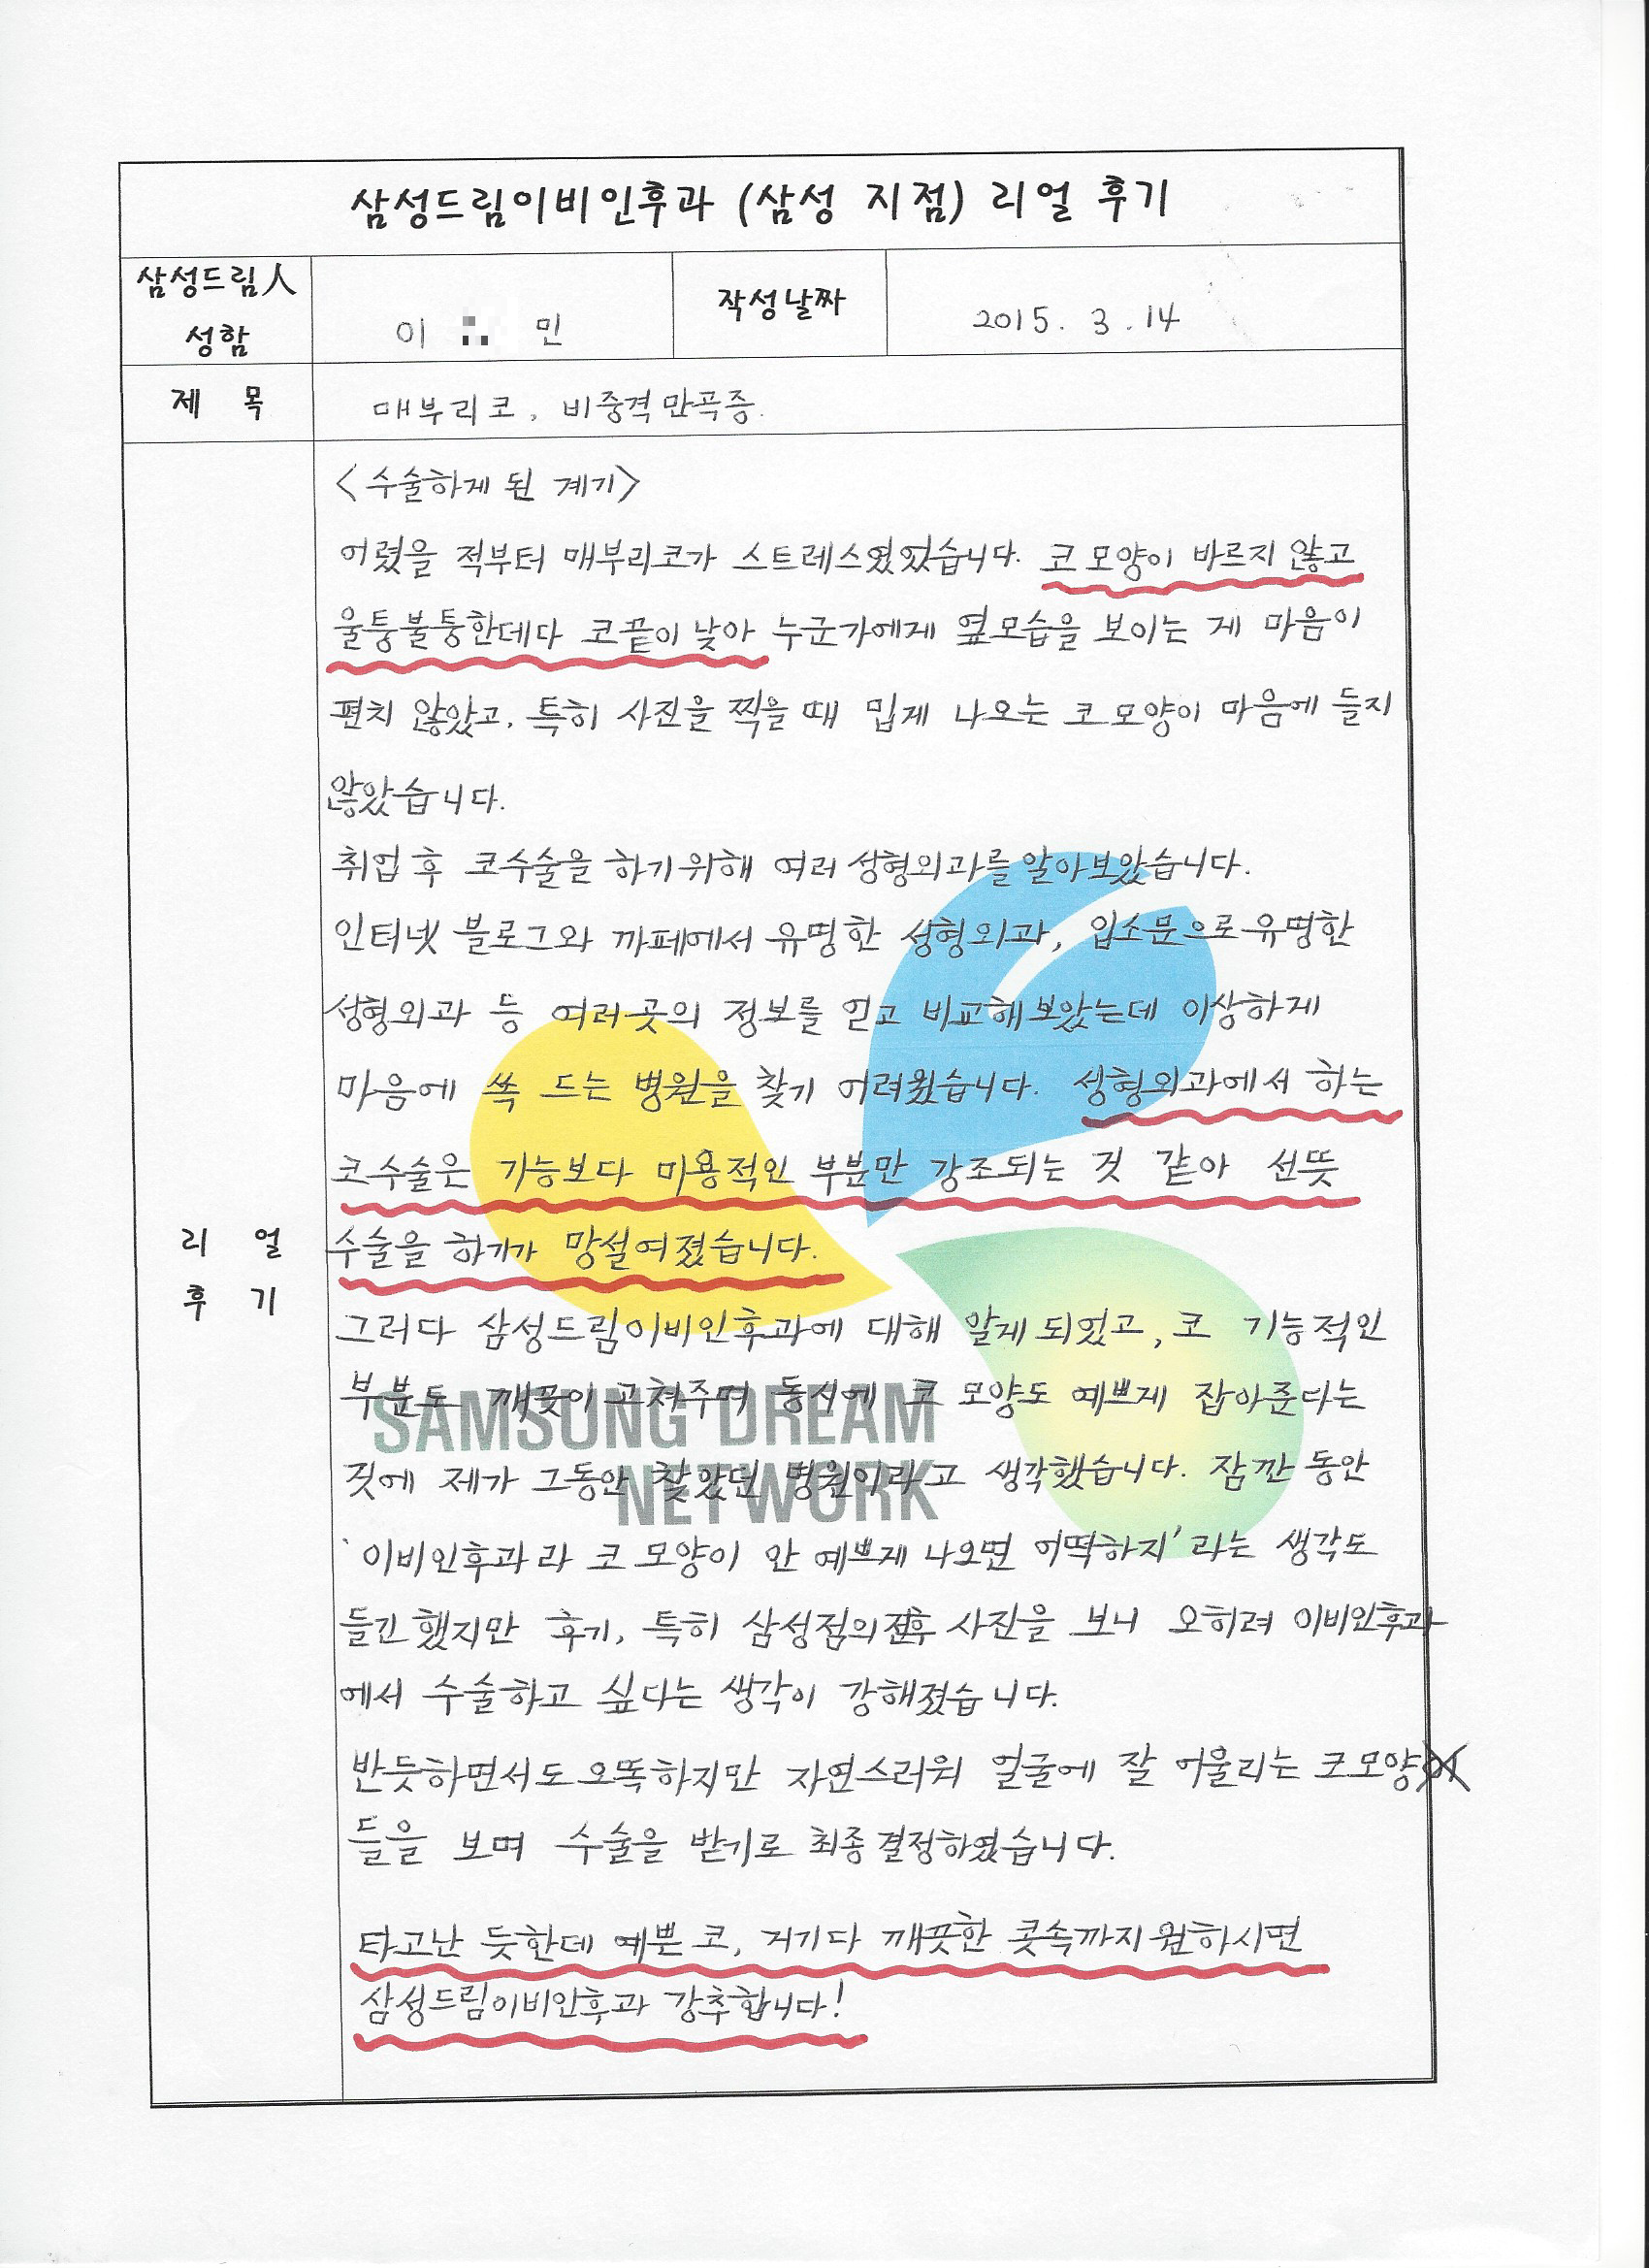 삼성드림이비인후과 (삼성 지점) 리얼 후기
삼성드림人
성함
이 민
작성날짜
2015. 3. 14
제 목
매부리코, 비중격만곡증.
리 얼
후 기
<수술하게 된 계기>
어렸을 적부터 매부리코가 스트레스였었습니다. 코 모양이 바르지 않고
울퉁불퉁한데다 코끝이 낮아 누군가에게 옆모습을 보이는 게 마음이
편치 않았고, 특히 사진을 찍을 때 밉게 나오는 코 모양이 마음에 들지
않았습니다.
취업 후 코수술을 하기위해 여러 성형외과를 알아보았습니다.
인터넷 블로그와 까페에서 유명한 성형외과, 입소문으로 유명한
성형외과 등 여러곳의 정보를 얻고 비교해보았는데 이상하게
마음에 쏙 드는 병원을 찾기 어려웠습니다. 성형외과에서 하는
코수술은 기능보다 미용적인 부분만 강조되는 것 같아 선뜻
수술을 하기가 망설여졌습니다.
그러다 삼성드림이비인후과에 대해 알게 되었고, 코 기능적인
부분도 깨끗이 고쳐주며 동시에 코 모양도 예쁘게 잡아준다는
것에 제가 그동안 찾았던 병원이라고 생각했습니다. 잠깐 동안
'이비인후과라 코 모양이 안 예쁘게 나오면 어떡하지'라는 생각도
들긴 했지만 후기, 특히 삼성점의 전후 사진을 보니 오히려 이비인후과
에서 수술하고 싶다는 생각이 강해졌습니다.
반듯하면서도 오똑하지만 자연스러워 얼굴에 잘 어울리는 코모양
들을 보며 수술을 받기로 최종결정하였습니다.
타고난 듯한데 예쁜 코, 거기다 깨끗한 콧속까지 원하시면
삼성드림이비인후과 강추합니다!
SAMSUNG DREAM
NETWORK